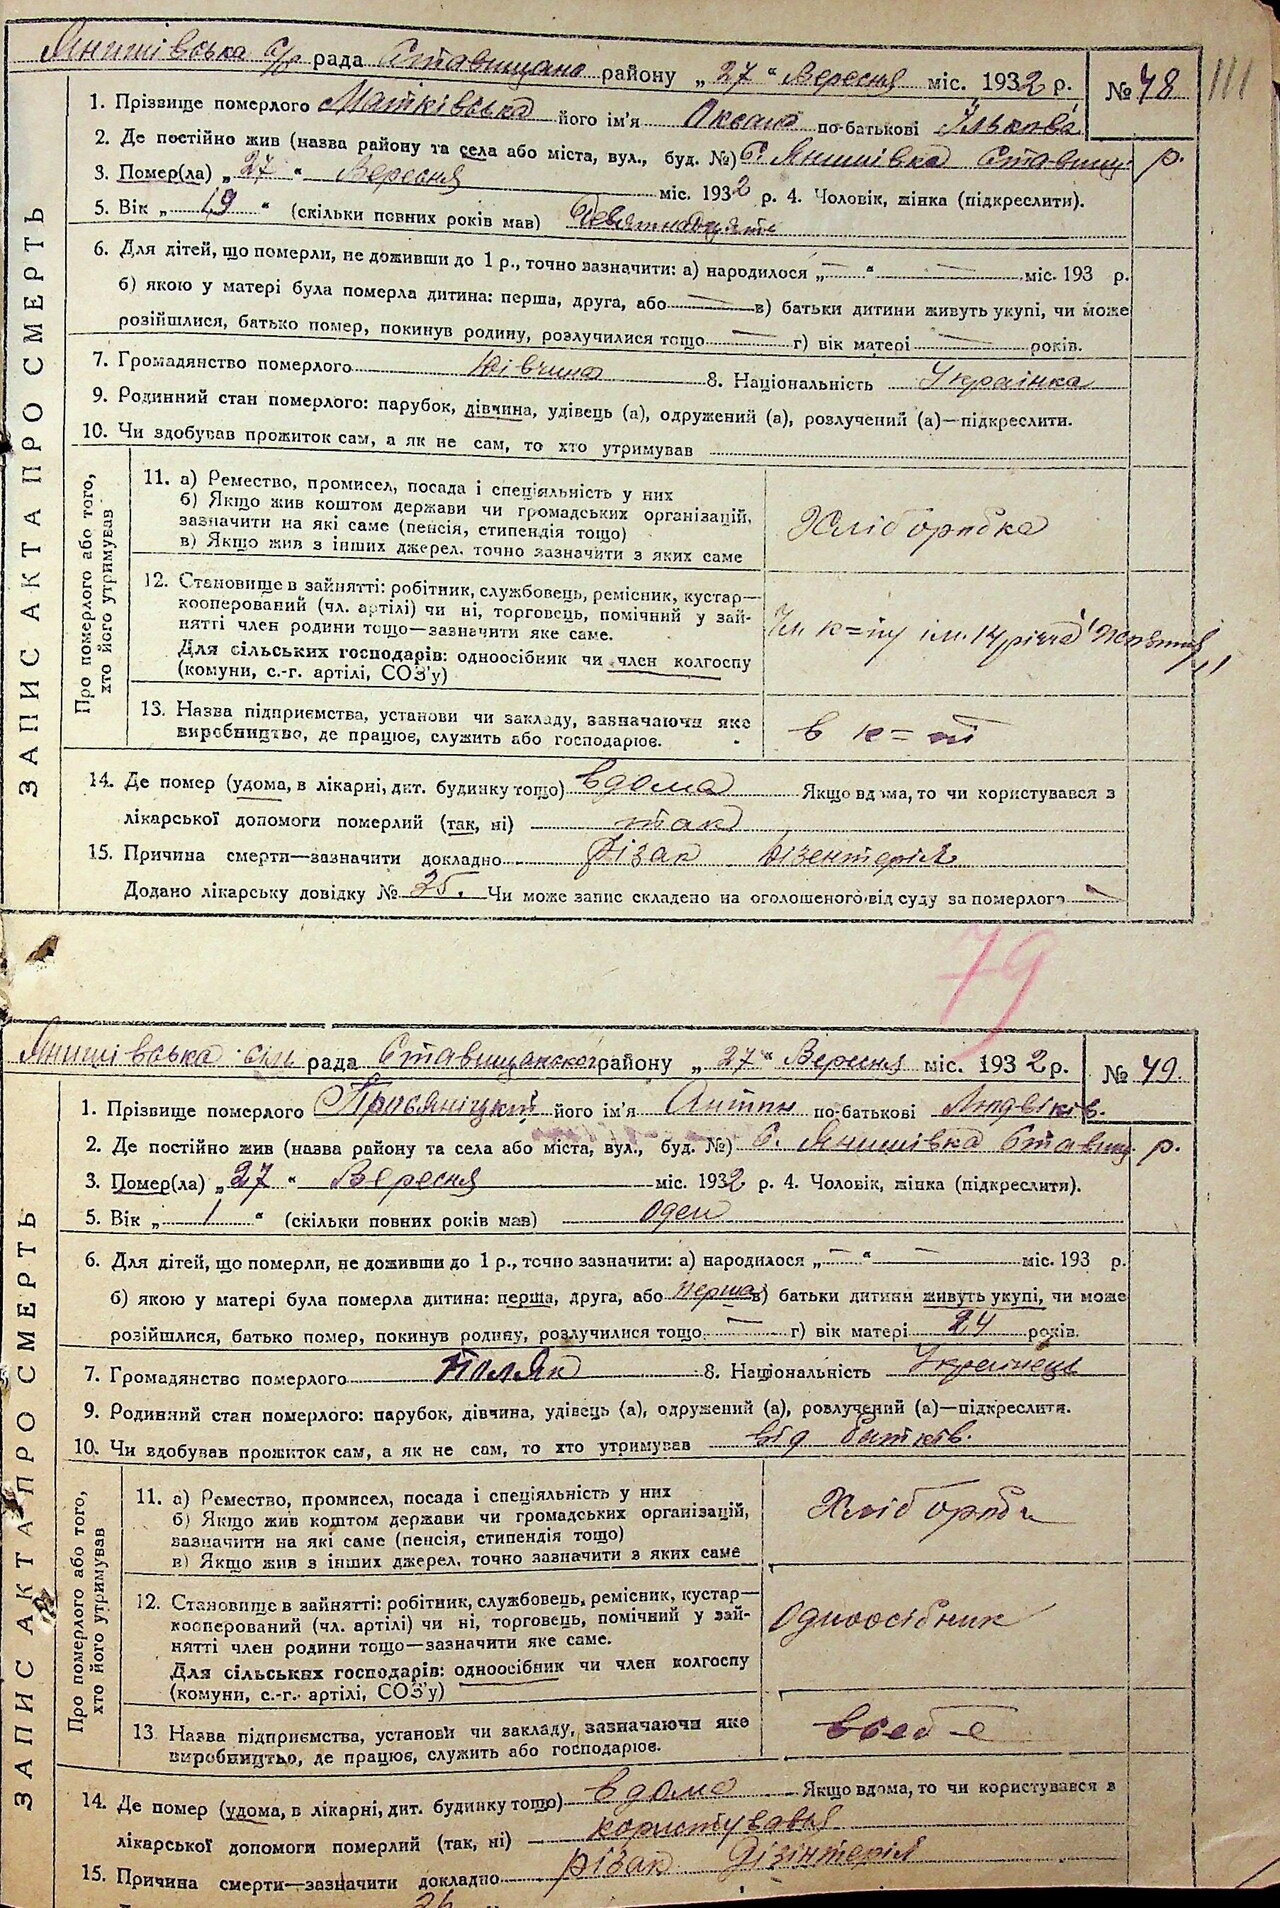 Янишівська с/р рада Ставищано району „27“ Вересня міс. 1932 р. № 48 111
1. Прізвище померлого Матківська його ім'я Оксана по-батькові Ількова
2. Де постійно жив (назва району та села або міста, вул., буд. №) С. Янишівка Ставищ. р.
3. Помер(ла) „27“ Вересня міс. 1932 р. 4. Чоловік, жінка (підкреслити).
5. Вік „19“ (скільки повних років мав) Девятнадцять
6. Для дітей, що померли, не доживши до 1 р., точно зазначити: а) народилося „—“ — міс. 193 р.
б) якою у матері була померла дитина: перша, друга, або — в) батьки дитини живуть укупі, чи може
розійшлися, батько помер, покинув родину, розлучилися тощо — г) вік матері — років.
7. Громадянство померлого Дівчина 8. Національність Українка
9. Родинний стан померлого: парубок, дівчина, удівець (а), одружений (а), розлучений (а)—підкреслити.
10. Чи здобував прожиток сам, а як не сам, то хто утримував
ЗАПИС АКТА ПРО СМЕРТЬ
Про померлого або того,
хто його утримував
11. а) Ремество, промисел, посада і спеціяльність у них
б) Якщо жив коштом держави чи громадських організацій,
зазначити на які саме (пенсія, стипендія тощо)
в) Якщо жив з інших джерел, точно зазначити з яких саме
Хліборобка
12. Становище в зайнятті: робітник, службовець, ремісник, кустар—
кооперований (чл. артілі) чи ні, торговець, помічний у зай-
нятті член родини тощо—зазначити яке саме.
Для сільських господарів: одноосібник чи член колгоспу
(комуни, с.-г. артілі, СОЗ'у)
Чл. к=пу ім. 14 річчя Жовтня
13. Назва підприємства, установи чи закладу, зазначаючи яке
виробництво, де працює, служить або господарює.
в к=пі
14. Де помер (удома, в лікарні, дит. будинку тощо) вдома Якщо вдома, то чи користувався з
лікарської допомоги померлий (так, ні) так
15. Причина смерти—зазначити докладно Різак Дізентерія
Додано лікарську довідку № 25. Чи може запис складено на оголошеного від суду за померлого —
79
Янишівська сіль рада Ставищанског району „27“ Вересня міс. 1932 р. № 49.
1. Прізвище померлого його ім'я Антін по-батькові Людвіків.
2. Де постійно жив (назва району та села або міста, вул., буд. №) С. Янишівка Ставищ. р.
3. Помер(ла) „27“ Вересня міс. 1932 р. 4. Чоловік, жінка (підкреслити).
5. Вік „1“ (скільки повних років мав) Оден
6. Для дітей, що померли, не доживши до 1 р., точно зазначити: а) народилося „—“ — міс. 193 р.
б) якою у матері була померла дитина: перша, друга, або перша в) батьки дитини живуть укупі, чи може
розійшлися, батько помер, покинув родину, розлучилися тощо — г) вік матері 24 років.
7. Громадянство померлого поляк 8. Національність Українець
9. Родинний стан померлого: парубок, дівчина, удівець (а), одружений (а), розлучений (а)—підкреслити.
10. Чи здобував прожиток сам, а як не сам, то хто утримував від батьків.
ЗАПИС АКТА ПРО СМЕРТЬ
Про померлого або того,
хто його утримував
11. а) Ремество, промисел, посада і спеціяльність у них
б) Якщо жив коштом держави чи громадських організацій,
зазначити на які саме (пенсія, стипендія тощо)
в) Якщо жив з інших джерел, точно зазначити з яких саме
Хлібороби
12. Становище в зайнятті: робітник, службовець, ремісник, кустар—
кооперований (чл. артілі) чи ні, торговець, помічний у зай-
нятті член родини тощо—зазначити яке саме.
Для сільських господарів: одноосібник чи член колгоспу
(комуни, с.-г. артілі, СОЗ'у)
Одноосібник
13. Назва підприємства, установи чи закладу, зазначаючи яке
виробництво, де працює, служить або господарює.
в себе
14. Де помер (удома, в лікарні, дит. будинку тощо) вдома Якщо вдома, то чи користувався з
лікарської допомоги померлий (так, ні) користувався
15. Причина смерти—зазначити докладно Різак Дізінтерія
26